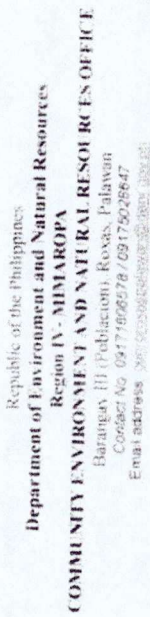 Republic of the Philippines
Department of Environment and Natural Resources
Region IV - MIMAROPA
COMMUNITY ENVIRONMENT AND NATURAL RESOURCES OFFICE
Barangay III (Poblacion), Roxas, Palawan
Contact No. 09171606578 / 09175028647
Email address